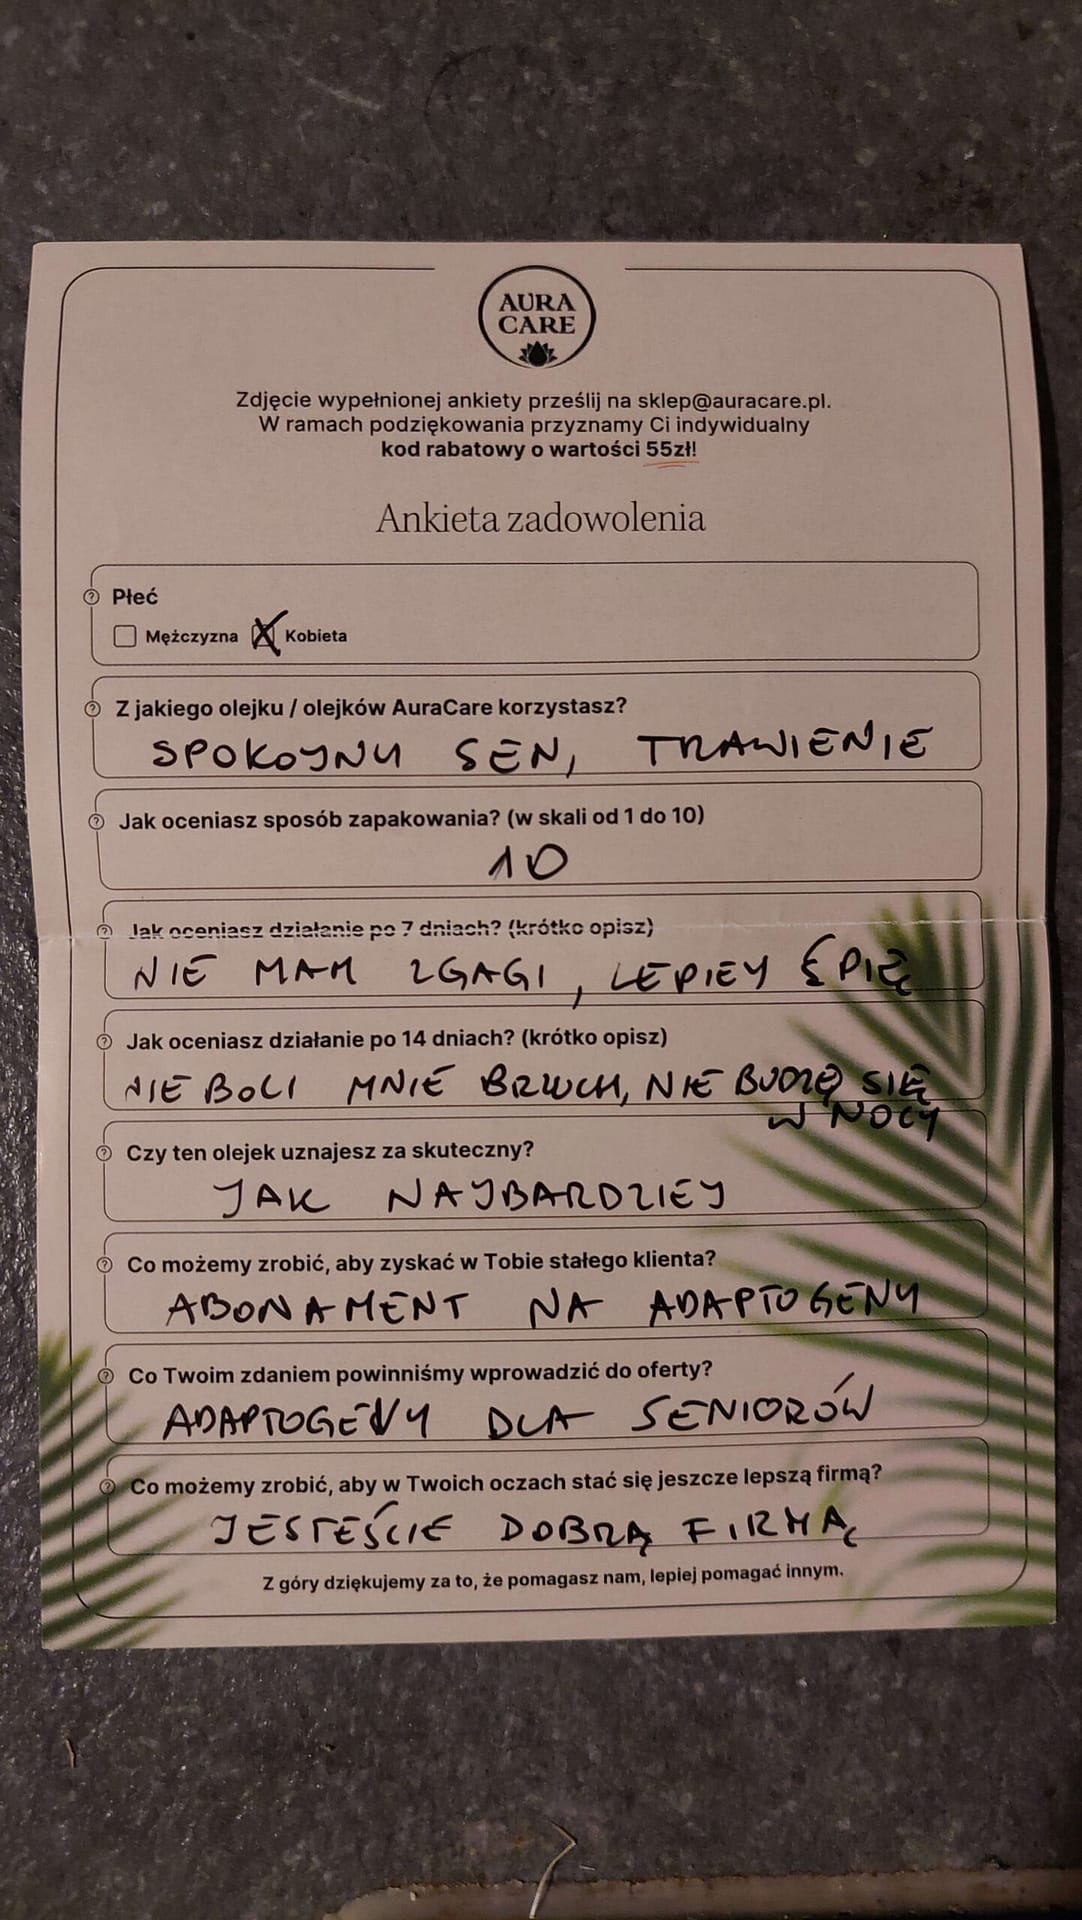 AURA
CARE
Zdjęcie wypełnionej ankiety prześlij na sklep@auracare.pl.
W ramach podziękowania przyznamy Ci indywidualny
kod rabatowy o wartości 55zł!
Ankieta zadowolenia
Płeć
Mężczyzna X Kobieta
Z jakiego olejku / olejków AuraCare korzystasz?
SPOKOJNY SEN, TRAWIENIE
Jak oceniasz sposób zapakowania? (w skali od 1 do 10)
10
Jak oceniasz działanie po 7 dniach? (krótko opisz)
NIE MAM ZGAGI, LEPIEJ ŚPIĘ
Jak oceniasz działanie po 14 dniach? (krótko opisz)
NIE BOLI MNIE BRZUCH, NIE BUDZĘ SIĘ
W NOCY
Czy ten olejek uznajesz za skuteczny?
JAK NAJBARDZIEJ
Co możemy zrobić, aby zyskać w Tobie stałego klienta?
ABONAMENT NA ADAPTOGENY
Co Twoim zdaniem powinniśmy wprowadzić do oferty?
ADAPTOGENY DLA SENIORÓW
Co możemy zrobić, aby w Twoich oczach stać się jeszcze lepszą firmą?
JESTEŚCIE DOBRĄ FIRMĄ
Z góry dziękujemy za to, że pomagasz nam, lepiej pomagać innym.